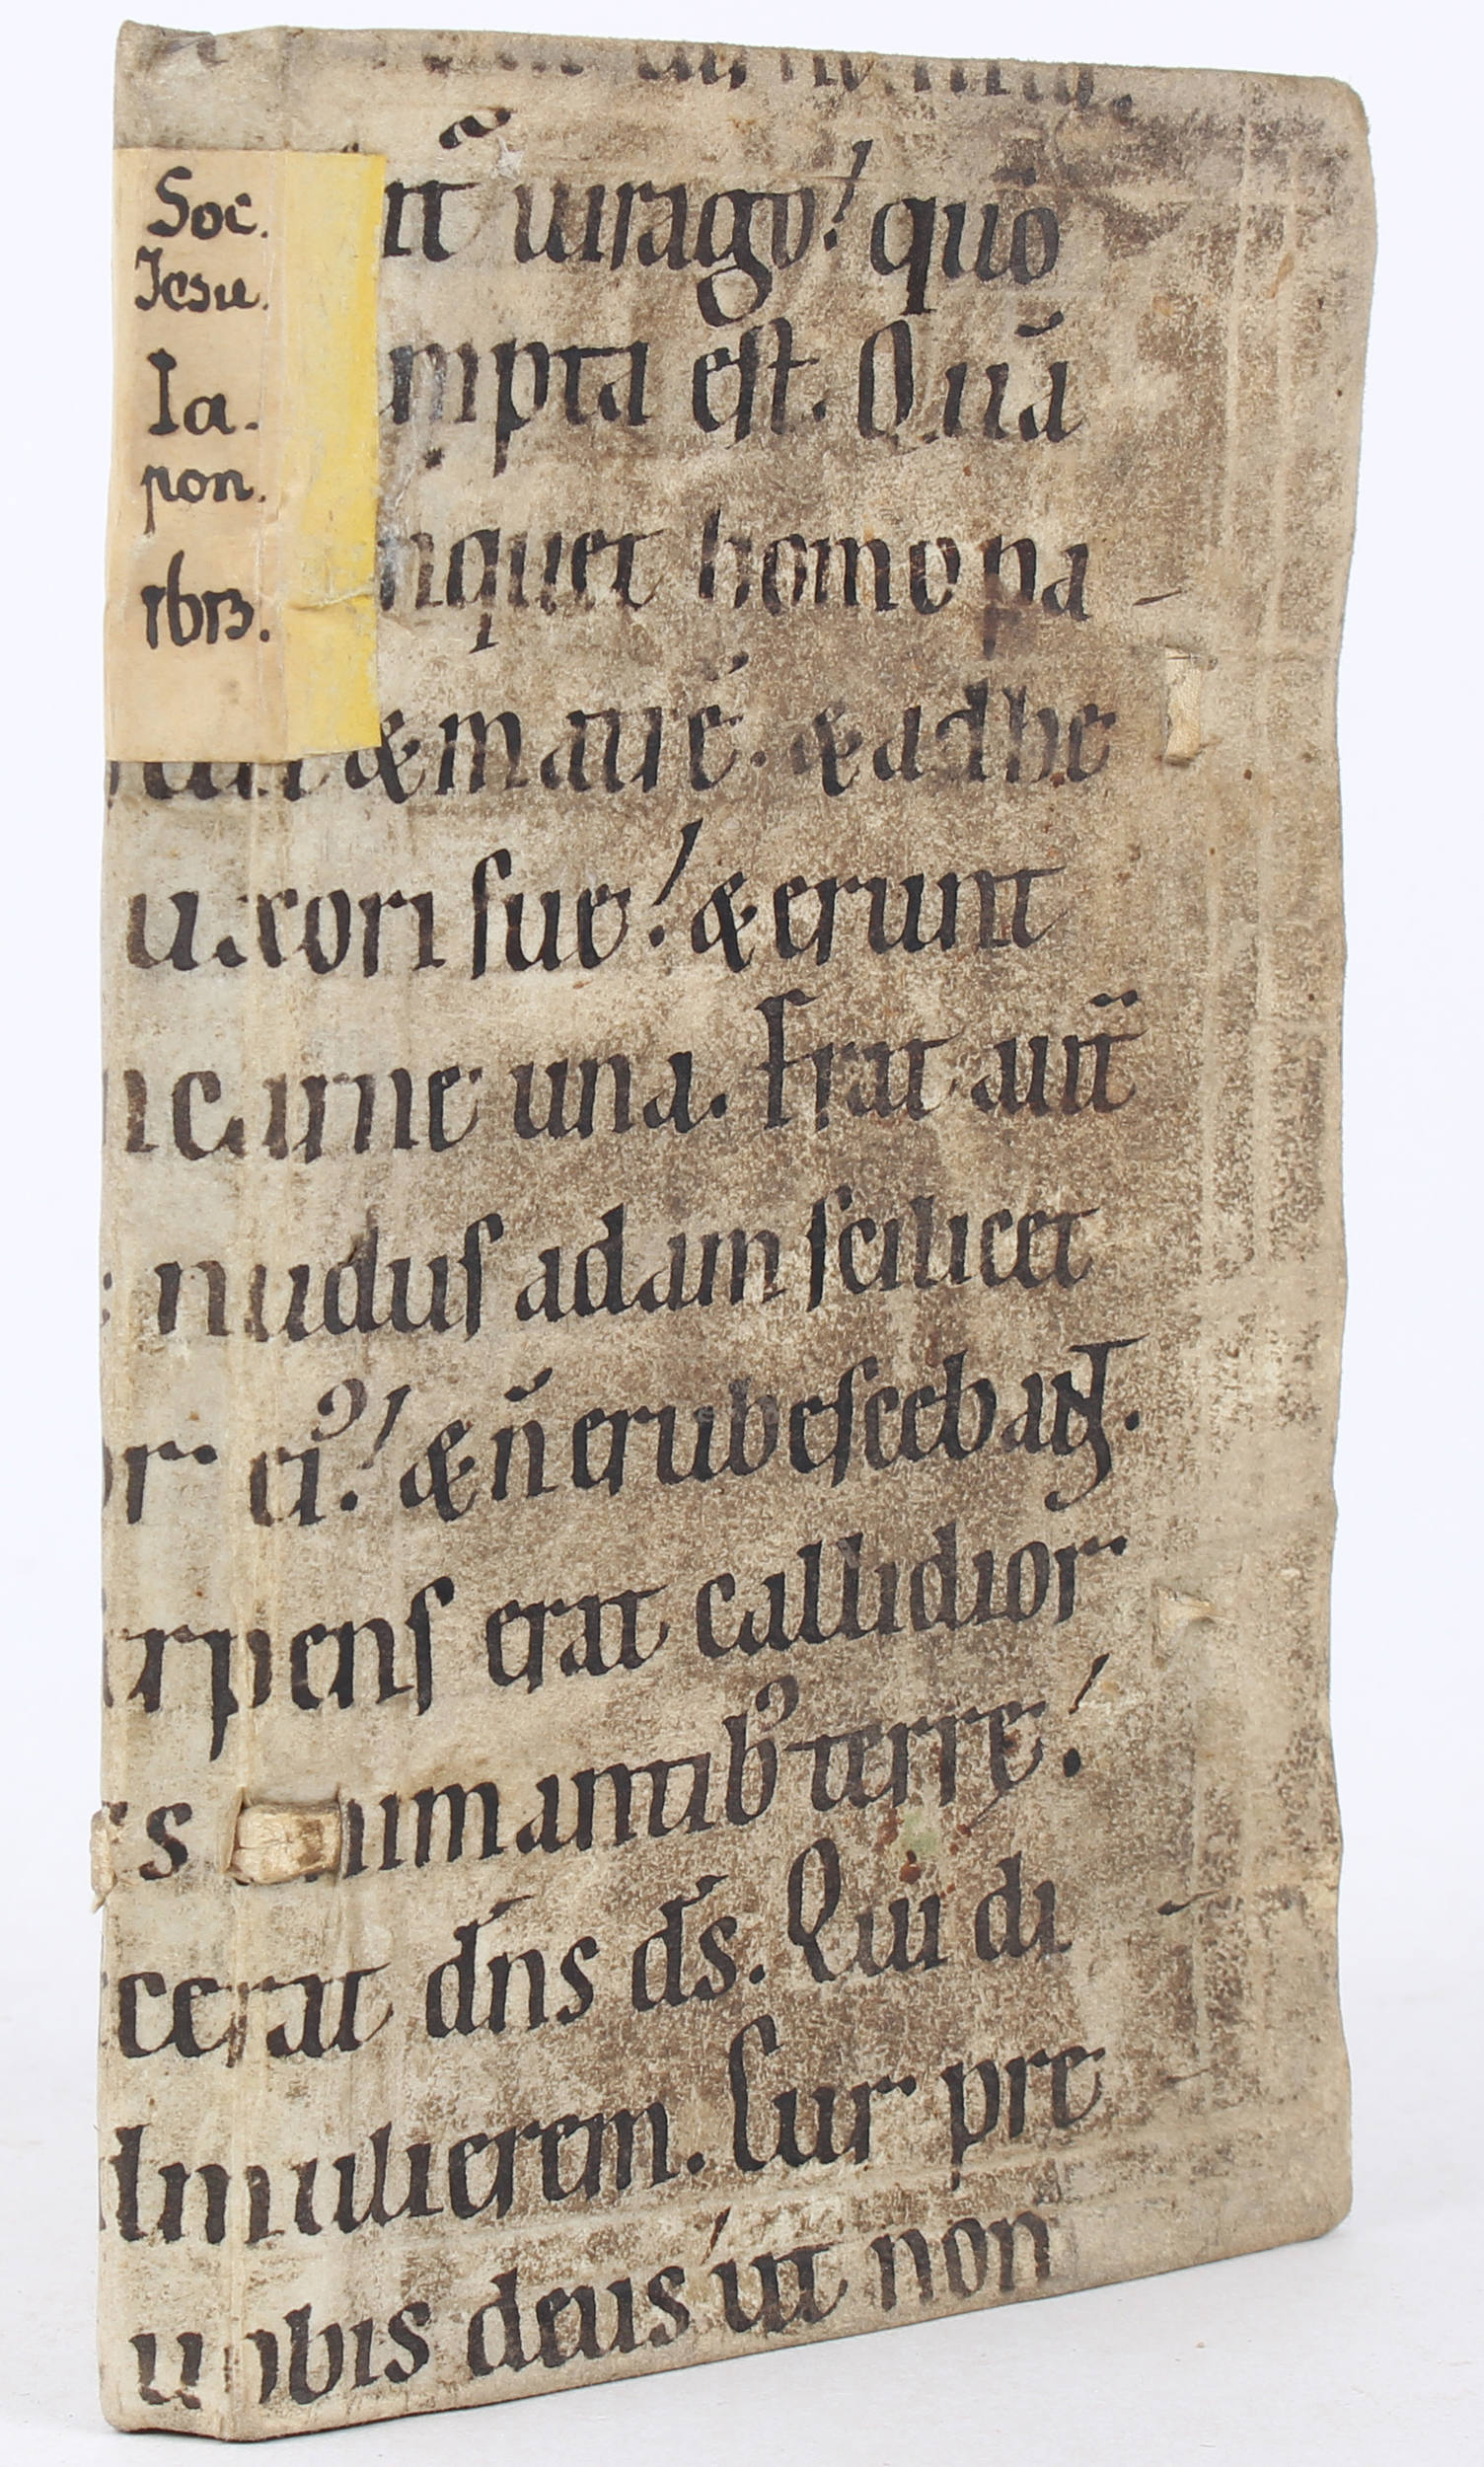 Soc.
Iesu.
Ia-
pon.
1613.
uirago! quō
mpta est. Quā
nquet homo pa
& matrē. & adhe
uxori sue! & erunt
carne una. Erat aut̄
nudus adam scilicet
eiꝰ! & n̄ erubescebant.
rpens erat callidior
s animantibꝰ terre!
cerat dn̄s ds̄. Qui di
mulierem. Cur pre
uobis deus út non